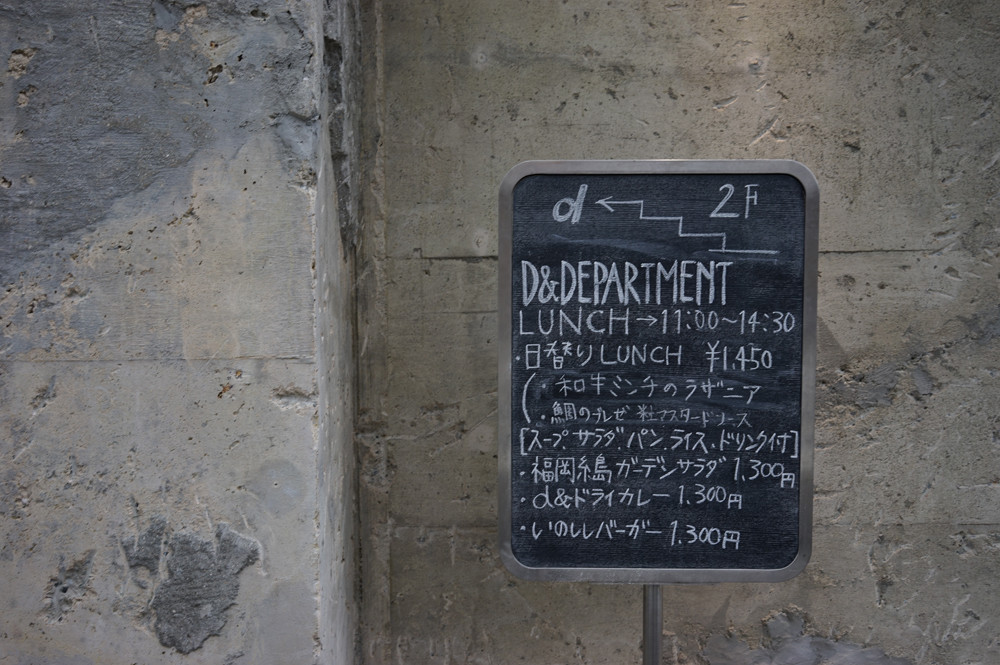 d ← 2F
D&DEPARTMENT
LUNCH→11:00~14:30
・日替りLUNCH ¥1.450
(・和牛ミンチのラザニア
・鯛のブレゼ 粒マスタードソース
[スープ.サラダ.パン.ライス.ドリンク付]
・福岡糸島ガーデンサラダ 1.300円
・d&ドライカレー 1.300円
・いのししバーガー 1.300円